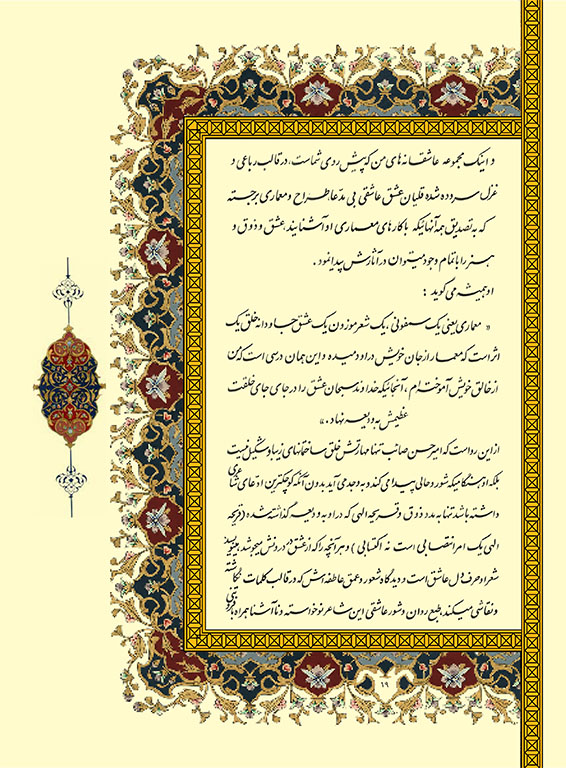 و اینک مجموعه عاشقانه های من که پیش روی شماست، در قالب رباعی و
غزل سروده شده قلیان عشق عاشقی بی مدعا طراح و معماری برجسته
که به تصدیق همه آنهائیکه با کارهای معماری او آشنایند، عشق و ذوق و
هنر را با تمام وجود میتوان در آثارش پیدا نمود.
او همیشه می گوید :
« معماری یعنی یک سمفونی، یک شعر موزون یک عشق جاودانه خلق یک
اثر است که معمار از جان خویش در او دمیده و این همان درسی است که من
از خالق خویش آموخته ام، آنجائیکه خداوند سبحان عشق را در جای جای خلقت
عظیمش به ودیعه نهاد.»
از این رواست که امیرحسن صائب تنها مهارتش خلق ساختمانهای زیبا و شکیل نیست
بلکه او هنگامیکه شور و حالی پیدا می کند و به وجد می آید بدون آنکه کوچکترین ادعای شاعری
داشته باشد تنها به مدد ذوق و قریحه الهی که در او به ودیعه گذاشته شده (قریحه
الهی یک امر انتصابی است نه اکتسابی ) و هر آنچه را که از عشق در درونش میجوشد،
شعر او حرف دل عاشق است و دیدگاه شعور و عمق عاطفه اش که در قالب کلمات نگاشته
و نقاشی میکند، طبع روان و شور عاشقی این شاعر نوخواسته و نا آشنا همراه با
۱۹